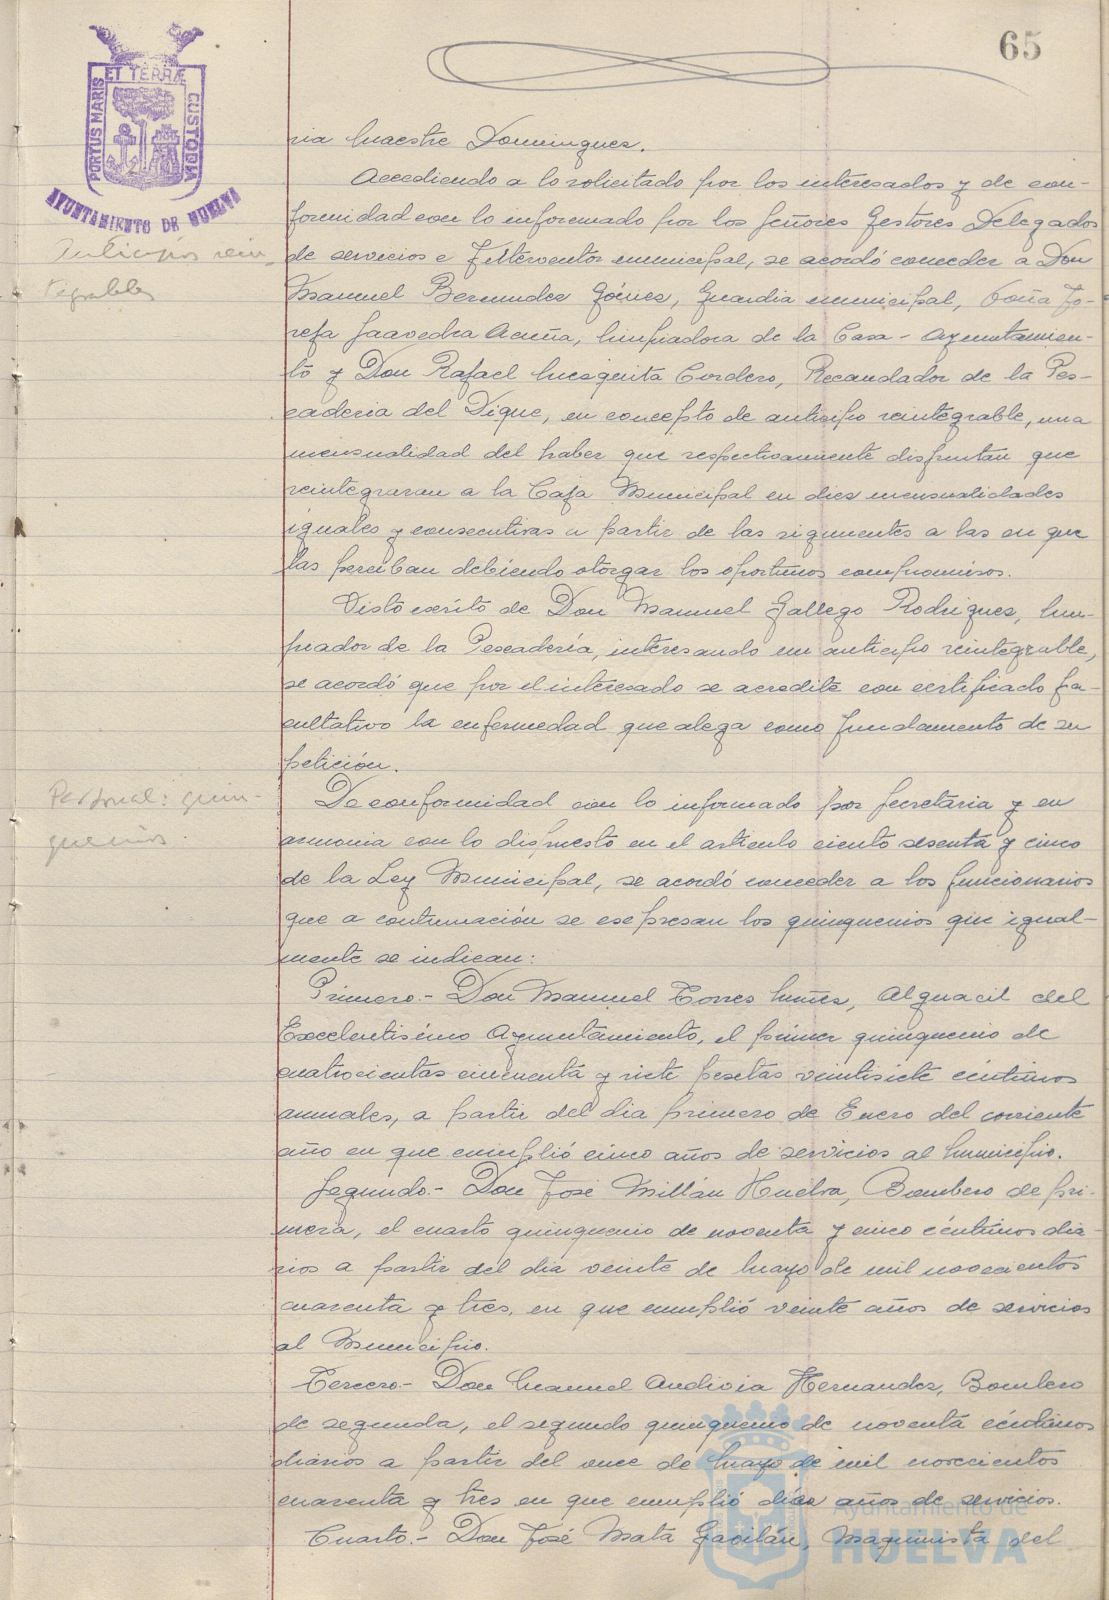 65
PORTUS MARIS ET TERRÆ CUSTODIA
AYUNTAMIENTO DE HUELVA
ria Maestre Dominguez.
Accediendo a lo solicitado por los interesados y de con-
formidad con lo informado por los Señores Gestores Delegados
Anticipos rein-
de servicios e Interventor municipal, se acordó conceder a Don
tegrables
Manuel Bermudez Gómez, Guardia municipal, Doña Jo-
sefa Saavedra Acuña, limpiadora de la Casa-Ayuntamien-
to y Don Rafael Mesquita Cordero, Recaudador de la Pes-
caderia del Dique, en concepto de anticipo reintegrable, una
mensualidad del haber que respectivamente disfrutan que
reintegraran a la Caja Municipal en diez mensualidades
iguales y consecutivas a partir de las siguientes a las en que
las perciban debiendo otorgar los oportunos compromisos.
Visto escrito de Don Manuel Gallego Rodriguez, lim-
piador de la Pescadería, interesando un anticipo reintegrable,
se acordó que por el interesado se acredite con certificado fa-
cultativo la enfermedad que alega como fundamento de su
petición.
Personal: quin-
quenios.
De conformidad con lo informado por Secretaria y en
armonia con lo dispuesto en el articulo ciento sesenta y cinco
de la Ley Municipal, se acordó conceder a los funcionarios
que a continuación se expresan los quinquenios que igual-
mente se indican:
Primero.- Don Manuel Torres Muñez, Alguacil del
Excelentisimo Ayuntamiento, el primer quinquenio de
cuatrocientas cincuenta y siete pesetas veintisiete céntimos
anuales, a partir del dia primero de Enero del corriente
año en que cumplió cinco años de servicios al Municipio.
Segundo.- Don José Millán Huelva, Bombero de pri-
mera, el cuarto quinquenio de noventa y cinco céntimos dia-
rios a partir del dia veinte de Mayo de mil novecientos
cuarenta y tres, en que cumplió veinte años de servicios
al Municipio.
Tercero.- Don Manuel Andivia Hernandez, Bombero
de segunda, el segundo quinquenio de noventa céntimos
diarios a partir del once de Mayo de mil novecientos
cuarenta y tres en que cumplió diez años de servicios.
Cuarto.- Don José Mata Gavilán, Maquinista del
Ayuntamiento de
HUELVA